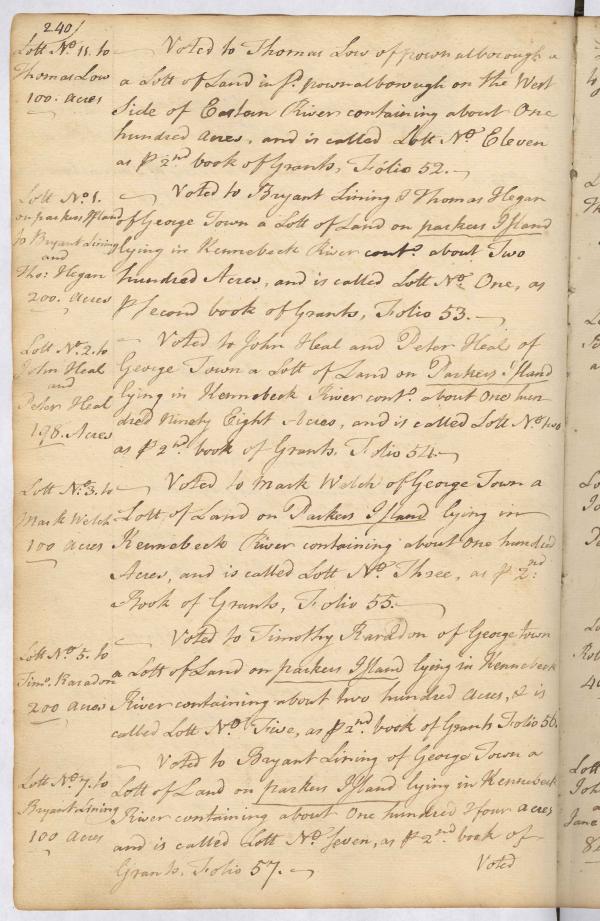 240/
Lott No. 11. to
Thomas Low
100. Acres
Voted to Thomas Low of pownalborough
a Lott of Land in sd. pownalborough on the West
Side of Eastern River containing about One
hundred Acres, and is called Lott No. Eleven
as ⅌ 2nd. book of Grants, Folio 52.
Lott No. 1.
on parkers Island
to Bryant Lining
and
Tho: Hegan
200. Acres
Voted to Bryant Lining & Thomas Hegan
of George Town a Lott of Land on parkers Island
lying in Kennebeck River conto. about Two
hundred Acres, and is called Lott No. One, as
⅌ Second book of Grants, Folio 53.
Lott No. 2. to
John Heal
and
Peter Heal
198. Acres
Voted to John Heal and Peter Heal of
George Town a Lott of Land on Parkers Island
lying in Kennebeck River conto. about One hun-
dred Ninety Eight Acres, and is called Lott No. two
as ⅌ 2nd. book of Grants, Folio 54.
Lott No. 3. to
Mark Welch
100 Acres
Voted to Mark Welch of George Town a
Lott of Land on Parkers Island lying in
Kennebeck River containing about One hundred
Acres, and is called Lott No. Three, as ⅌ 2nd.
Book of Grants, Folio 55.
Lott No. 5. to
Timo. Raradon
200 Acres
Voted to Timothy Raradon of George town
a Lott of Land on parkers Island lying in Kennebeck
River containing about two hundred Acres, & is
called Lott No. Five, as ⅌ 2nd. book of Grants Folio 56.
Lott No. 7. to
Bryant Lining
100 Acres
Voted to Bryant Lining of George Town a
Lott of Land on parkers Island lying in Kennebeck
River containing about One hundred & four acres
and is called Lott No. Seven, as ⅌ 2nd. book of
Grants, Folio 57.
Voted